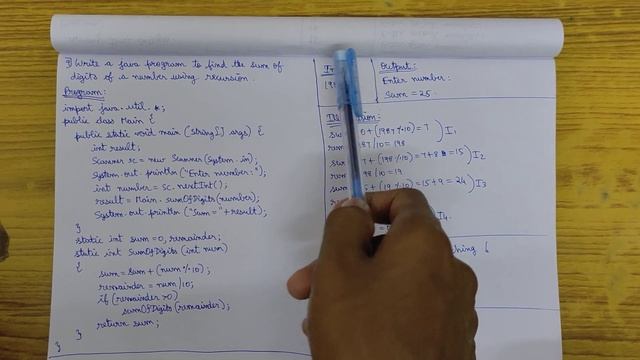 9) Write a Java program to find the sum of
digits of a number using recursion.
Program:
import java.util.*;
public class Main {
public static void main (String[] args) {
int result;
Scanner sc = new Scanner (System.in);
System.out.println ("Enter number:");
int number = sc.nextInt();
result = Main.sumOfDigits (number);
System.out.println ("Sum = " + result);
}
static int sum = 0, remainder;
static int SumOfDigits (int num)
{
sum = sum + (num % 10);
remainder = num/10;
if (remainder > 0)
sumOfDigits (remainder);
return sum;
}
}
Output:
Enter number:
Sum = 25.
0 + (1987 % 10) = 7
187/10 = 198
7 + (198 % 10) = 7 + 8 = 15
I1
98/10 = 19
I2
+ (19 % 10) = 15 + 9 = 24
I3
I4.
ching